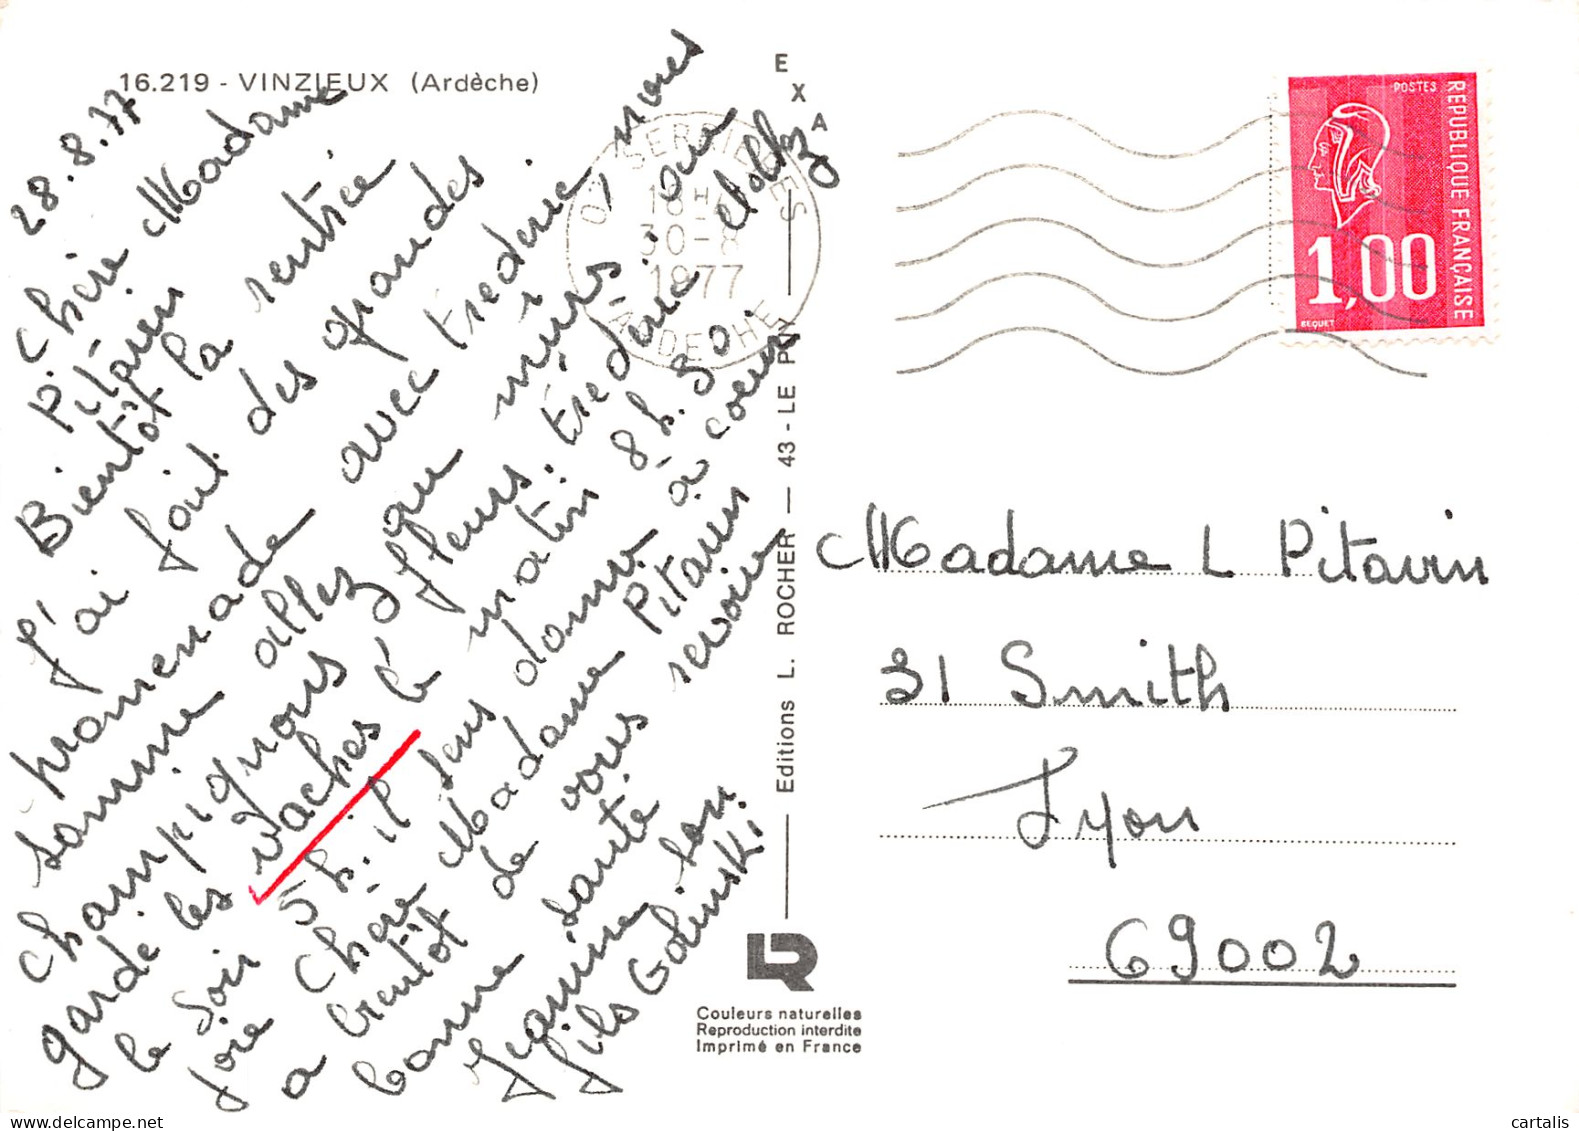 16.219 - VINZIEUX (Ardèche)
28.8.77
Chère Madame
Pitavin
Bientôt la rentrée
J'ai fait des grandes
promenade avec trederic, nous
somme allez que mûrs
champignons fleurs. trederic
garde les vaches le matin 8 h. 30.
le soir 5 h. il sens donne à coeur
joie Chère Madame Pitavin
a bientôt de vous revoire
bonne santé
Jeanine. son
fils Golinski
E
X
A
07 SERRIERES
18H
30-8
1977
ARDECHE
Editions L. ROCHER — 43 - LE PUY
LR
Couleurs naturelles
Reproduction interdite
Imprimé en France
POSTES
REPUBLIQUE FRANÇAISE
1,00
BEQUET
Madame L Pitavin
31 Smith
Lyon
69002
cartalis.com